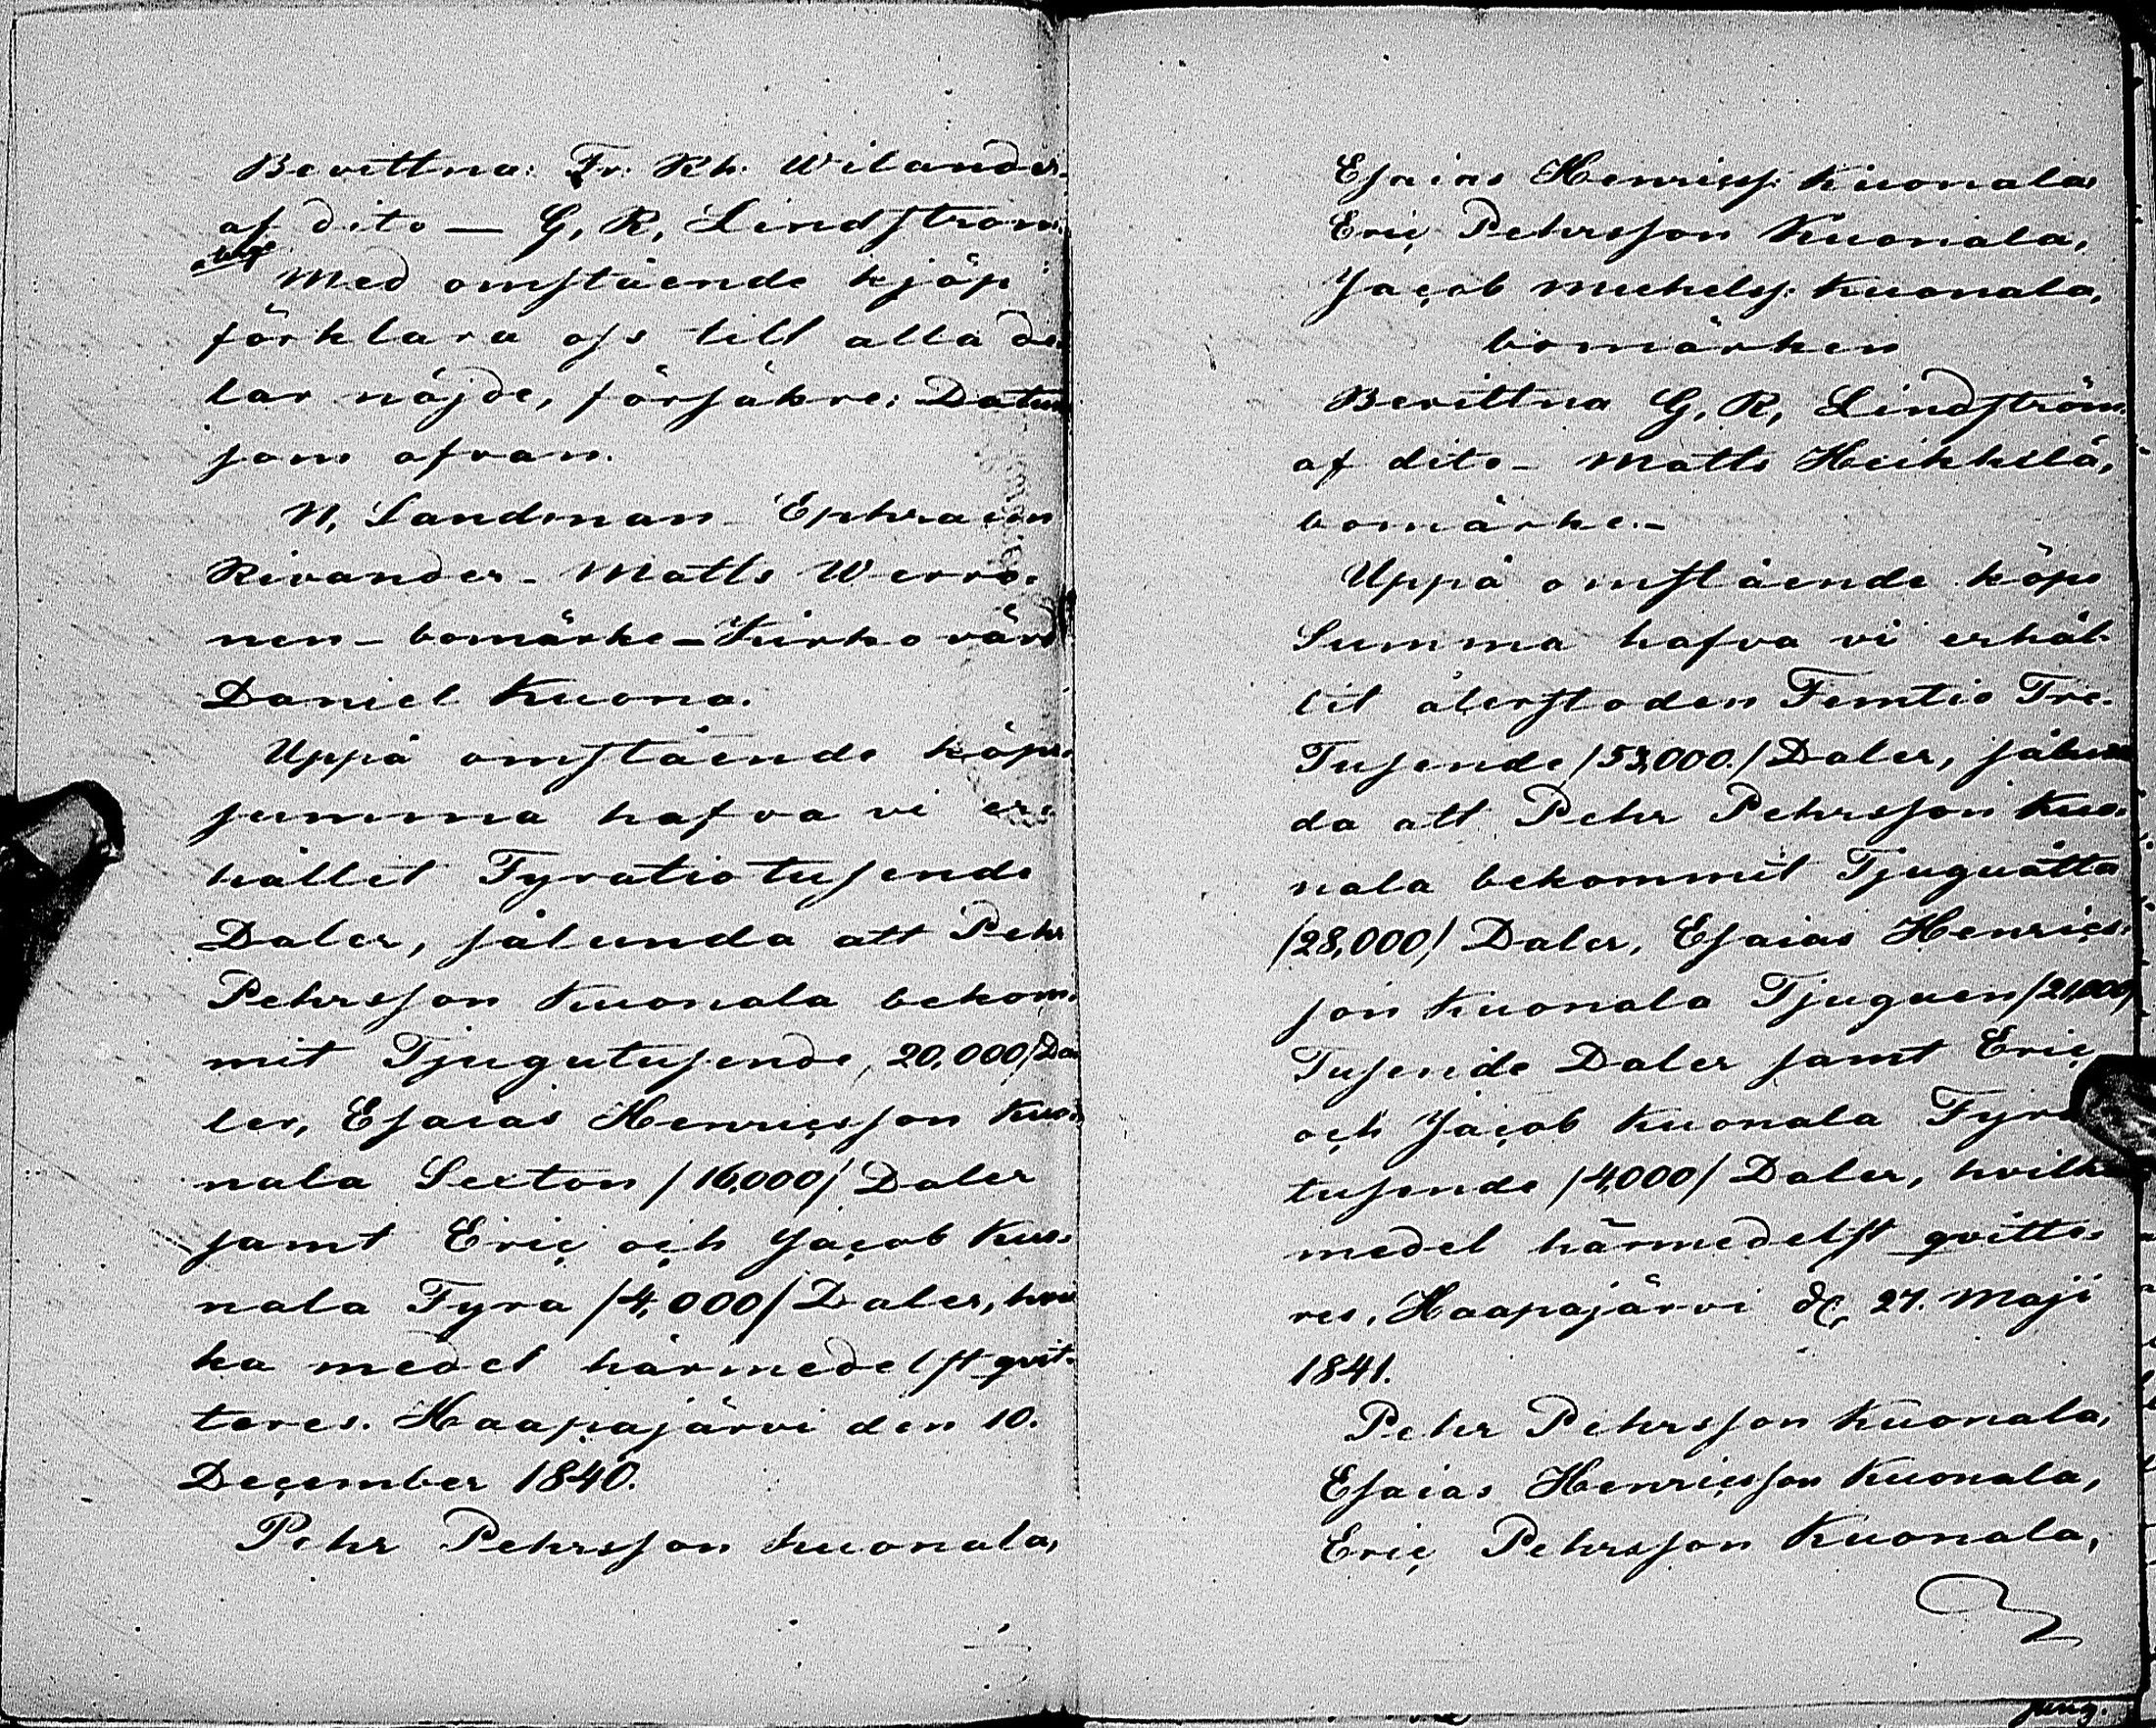 Bevittna: Fr. Rh. Wilander
af dito — G, R, Lindström.
Med omstående kjöp
förklara oss till alla de-
lar nöjde, försäkre; Datum
som ofvan.
N, Sandman – Ephraim
Rivander – Matts Werro-
nen – bomärke – Kirkovärd
Daniel Kuona.
Uppå omstående köpe-
summa hafva vi er-
hållit Fyratiotusende
Daler, sålunda att Pehr
Pehrsson Kuonala bekom-
mit Tjugutusende, 20,000/ Da-
ler, Esaias Henricsson Kuo-
nala Sexton /16,000/ Daler
samt Eric och Jacob Kuo-
nala Fyra /4,000/ Daler, hvil
ka medel härmedelst qvit-
teres. Haapajärvi den 10.
December 1840.
Pehr Pehrsson Kuonala,
Esaias Henricss: Kuonala
Eric Pehrsson Kuonala,
Jacob Michelss: Kuonala,
bomärken
Bevittna G, R, Lindström
af dito – Matts Heikkilä,
bomärke. –
Uppå omstående köpe
Summa hafva vi erhål-
lit återstoden Femtio Tre-
Tusende /53,000./ Daler, sålun
da att Pehr Pehrsson Kuo-
nala bekommit Tjuguåtta
/28,000/ Daler, Esaias Henrics-
son Kuonala Tjuguen /21,000/
Tusende Daler samt Eric
och Jacob Kuonala Fyra
tusende /4,000/ Daler, hvilka
medel härmedelst qvitte-
res. Haapajärvi d. 27. Maji
1841.
Pehr Pehrsson Kuonala,
Esaias Henricsson Kuonala,
Eric Pehrsson Kuonala,